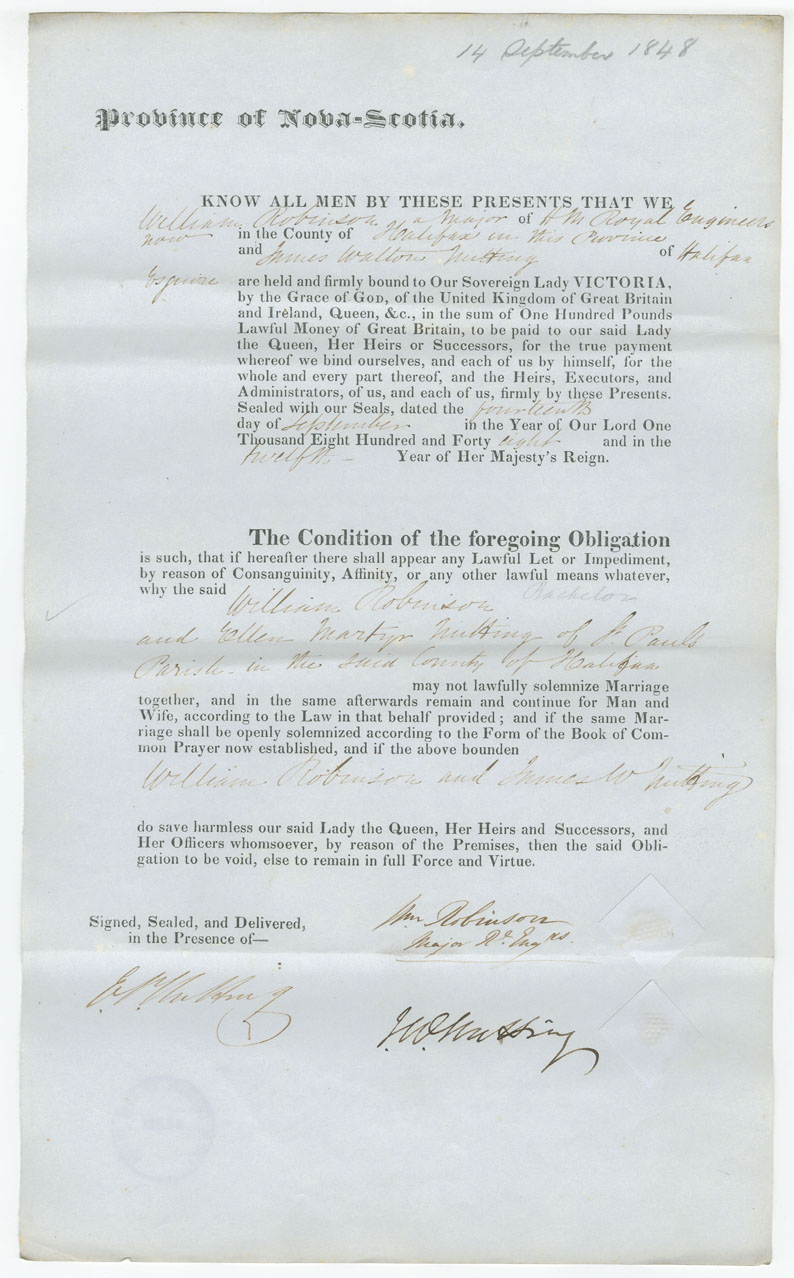 14 September 1848
Province of Nova-Scotia.
KNOW ALL MEN BY THESE PRESENTS THAT WE
William Robinson a Major of H M Royal Engineers
now in the County of Halifax in this Province
and James Walton Nutting of Halifax
Esquire are held and firmly bound to Our Sovereign Lady VICTORIA,
by the Grace of GOD, of the United Kingdom of Great Britain
and Ireland, Queen, &c., in the sum of One Hundred Pounds
Lawful Money of Great Britain, to be paid to our said Lady
the Queen, Her Heirs or Successors, for the true payment
whereof we bind ourselves, and each of us by himself, for the
whole and every part thereof, and the Heirs, Executors, and
Administrators, of us, and each of us, firmly by these Presents.
Sealed with our Seals, dated the fourteenth
day of September in the Year of Our Lord One
Thousand Eight Hundred and Forty eight and in the
twelfth - Year of Her Majesty's Reign.
The Condition of the foregoing Obligation
is such, that if hereafter there shall appear any Lawful Let or Impediment,
by reason of Consanguinity, Affinity, or any other lawful means whatever,
why the said William Robinson Bachelor
and Ellen Martyr Nutting of St Pauls
Parish in the said County of Halifax
may not lawfully solemnize Marriage
together, and in the same afterwards remain and continue for Man and
Wife, according to the Law in that behalf provided; and if the same Mar-
riage shall be openly solemnized according to the Form of the Book of Com-
mon Prayer now established, and if the above bounden
William Robinson and James W Nutting
do save harmless our said Lady the Queen, Her Heirs and Successors, and
Her Officers whomsoever, by reason of the Premises, then the said Obli-
gation to be void, else to remain in full Force and Virtue.
Signed, Sealed, and Delivered,
in the Presence of—
Wm Robinson
Major Rl Engrs.
Nutting
J W Nutting